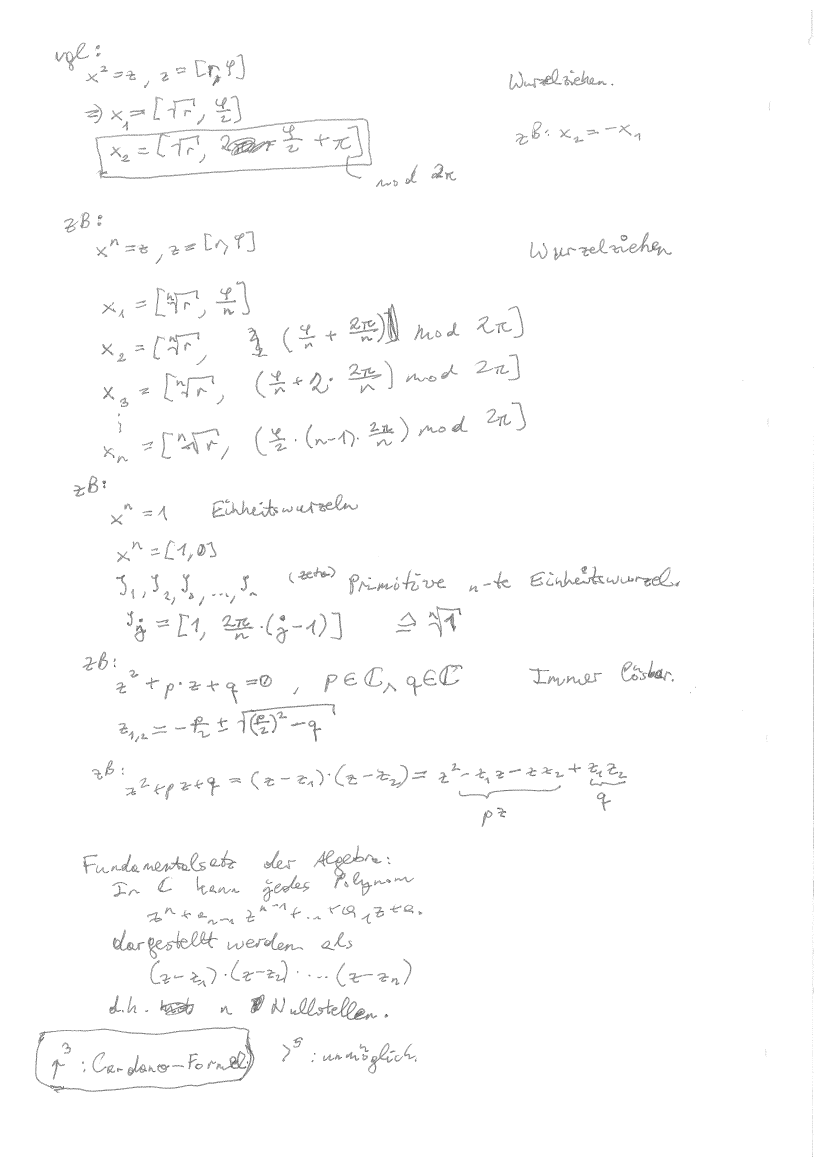 vgl:
x² = z , z = [r, φ] Wurzelziehen.
⇒ x₁ = [√r, φ/2]
x₂ = [√r, φ/2 + π] zB: x₂ = -x₁
mod 2π
zB:
xⁿ = z , z = [r, φ] Wurzelziehen
x₁ = [ⁿ√r, φ/n]
x₂ = [ⁿ√r, (φ/n + 2π/n) mod 2π]
x₃ = [ⁿ√r, (φ/n + 2· 2π/n) mod 2π]
⋮
xₙ = [ⁿ√r, (φ/2 · (n-1) · 2π/n) mod 2π]
zB:
xⁿ = 1 Einheitswurzeln
xⁿ = [1, 0]
ζ₁, ζ₂, ζ₃, ..., ζₙ (zeta) Primitive n-te Einheitswurzel.
ζⱼ = [1, 2π/n · (j-1)] ≙ ⁿ√1
zB:
z² + p·z + q = 0 , p∈ℂ ∧ q∈ℂ Immer lösbar.
z₁,₂ = -p/2 ± √((p/2)² - q)
zB:
z² + pz + q = (z-z₁)·(z-z₂) = z² - z₁z - zz₂ + z₁z₂
pz q
Fundamentalsatz der Algebra:
In ℂ kann jedes Polynom
zⁿ + aₙ₋₁ zⁿ⁻¹ + ... + a₁z + a₀
dargestellt werden als
(z-z₁)·(z-z₂)· ... (z-zₙ)
d.h. n Nullstellen.
↑³ : Cardano-Formel >⁵ : unmöglich.